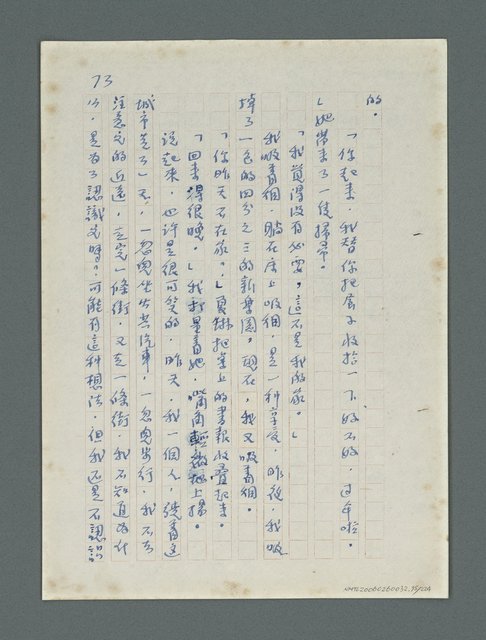 73
的。
「你起來，我替你把屋子收拾一下好不好，過年啦。
」她帶來了一隻掃帚。
「我覺得沒有必要，這不是我的家。」
我吸著烟，躺在床上吸烟，是一種享受，昨夜，我吸
掉了一包的四分之三的新樂園，現在，我又吸著烟。
「你昨天不在家。」夏琳把桌上的書報收疊起來。
「回來得很晚。」我打量著她，嘴角輕微地上揚。
說起來，也許是很可笑的，昨天，我一個人，繞著這
城市走了一天，一忽兒坐公共汽車，一忽兒步行，我不去
注意它的近遠，走完一條街，又走一條街，我不知道為什
么，是為了認識它嗎？可能有這種想法，但我還是不認識
NMTL20060260032